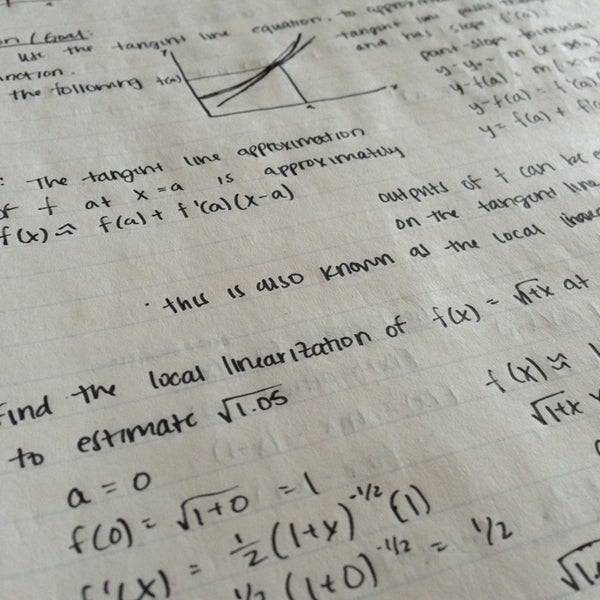 on / Goal:
use the tangint line equation, to
nction.
the following
f(a)
y
x
a
tangent line
and has slope f'(a).
point-slope formula:
y-y₁ = m(x-x₁)
y-f(a) = m(x-a)
y-f(a) = f'(a)
y = f(a) + f'(
: The tangint line approximation
of f at x=a is approximately
f(x) ≈ f(a) + f'(a)(x-a)
outputs of f can be
on the tangint line
· this is also known as the local
Find the local linearization of f(x) = √1+x at
to estimate √1.05
a = 0
f(0) = √1+0 = 1
f'(x) = 1/2 (1+x)^-1/2 (1)
1/2 (1+0)^-1/2 = 1/2
f(x) ≈ 1
√1+x
√1.